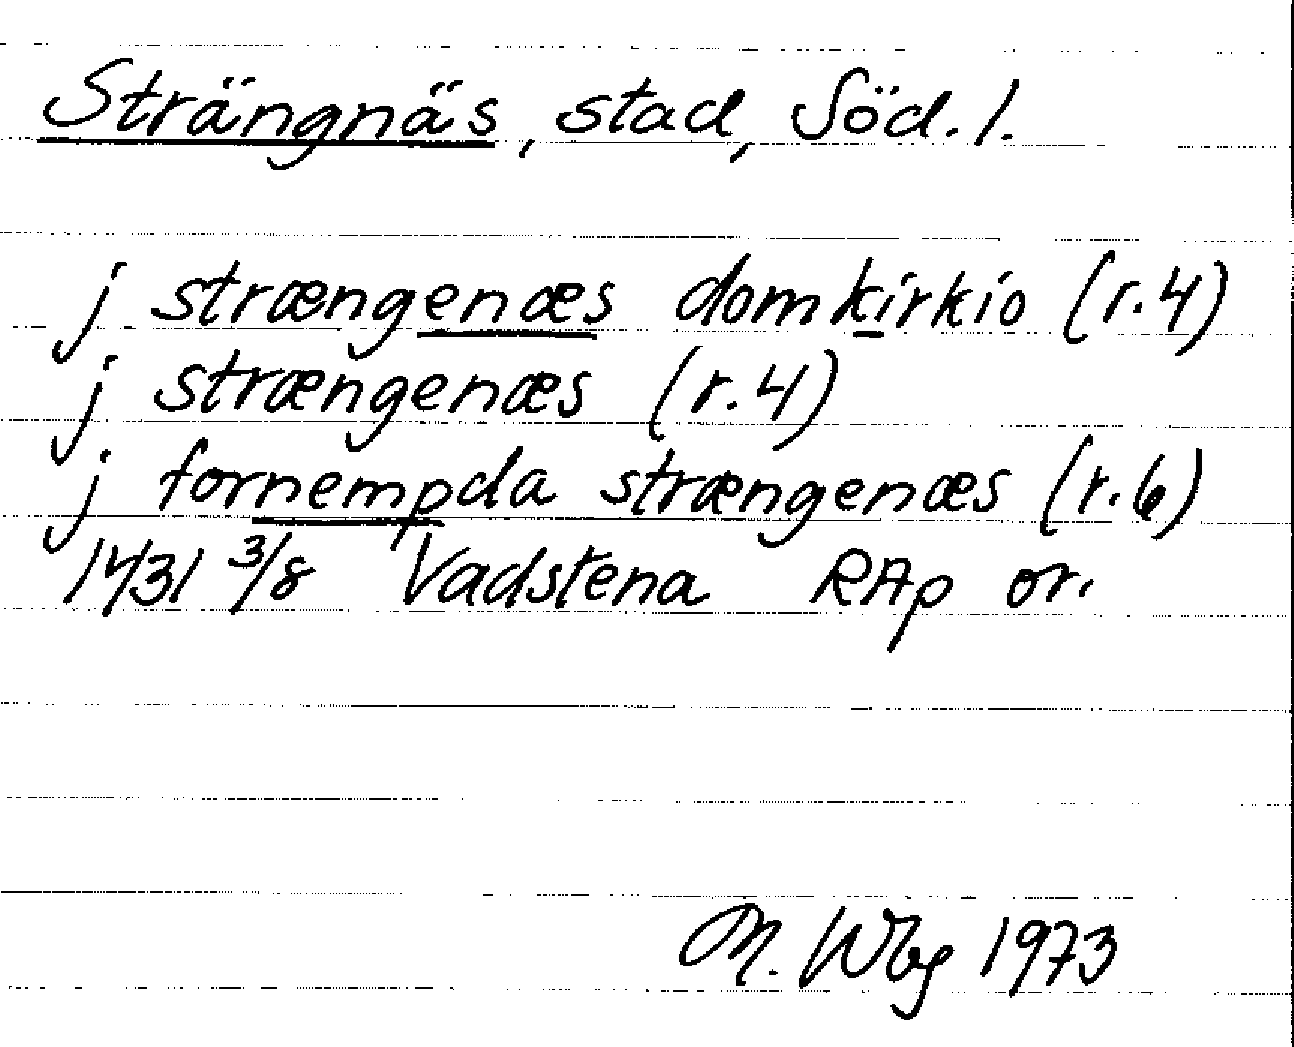 Strängnäs, stad, Söd. l.
j strængenæs domkirkio (r.4)
j strængenæs (r.4)
j fornempda strængenæs (r.6)
1431 3/8 Vadstena RAp or.
M. Wbg 1973